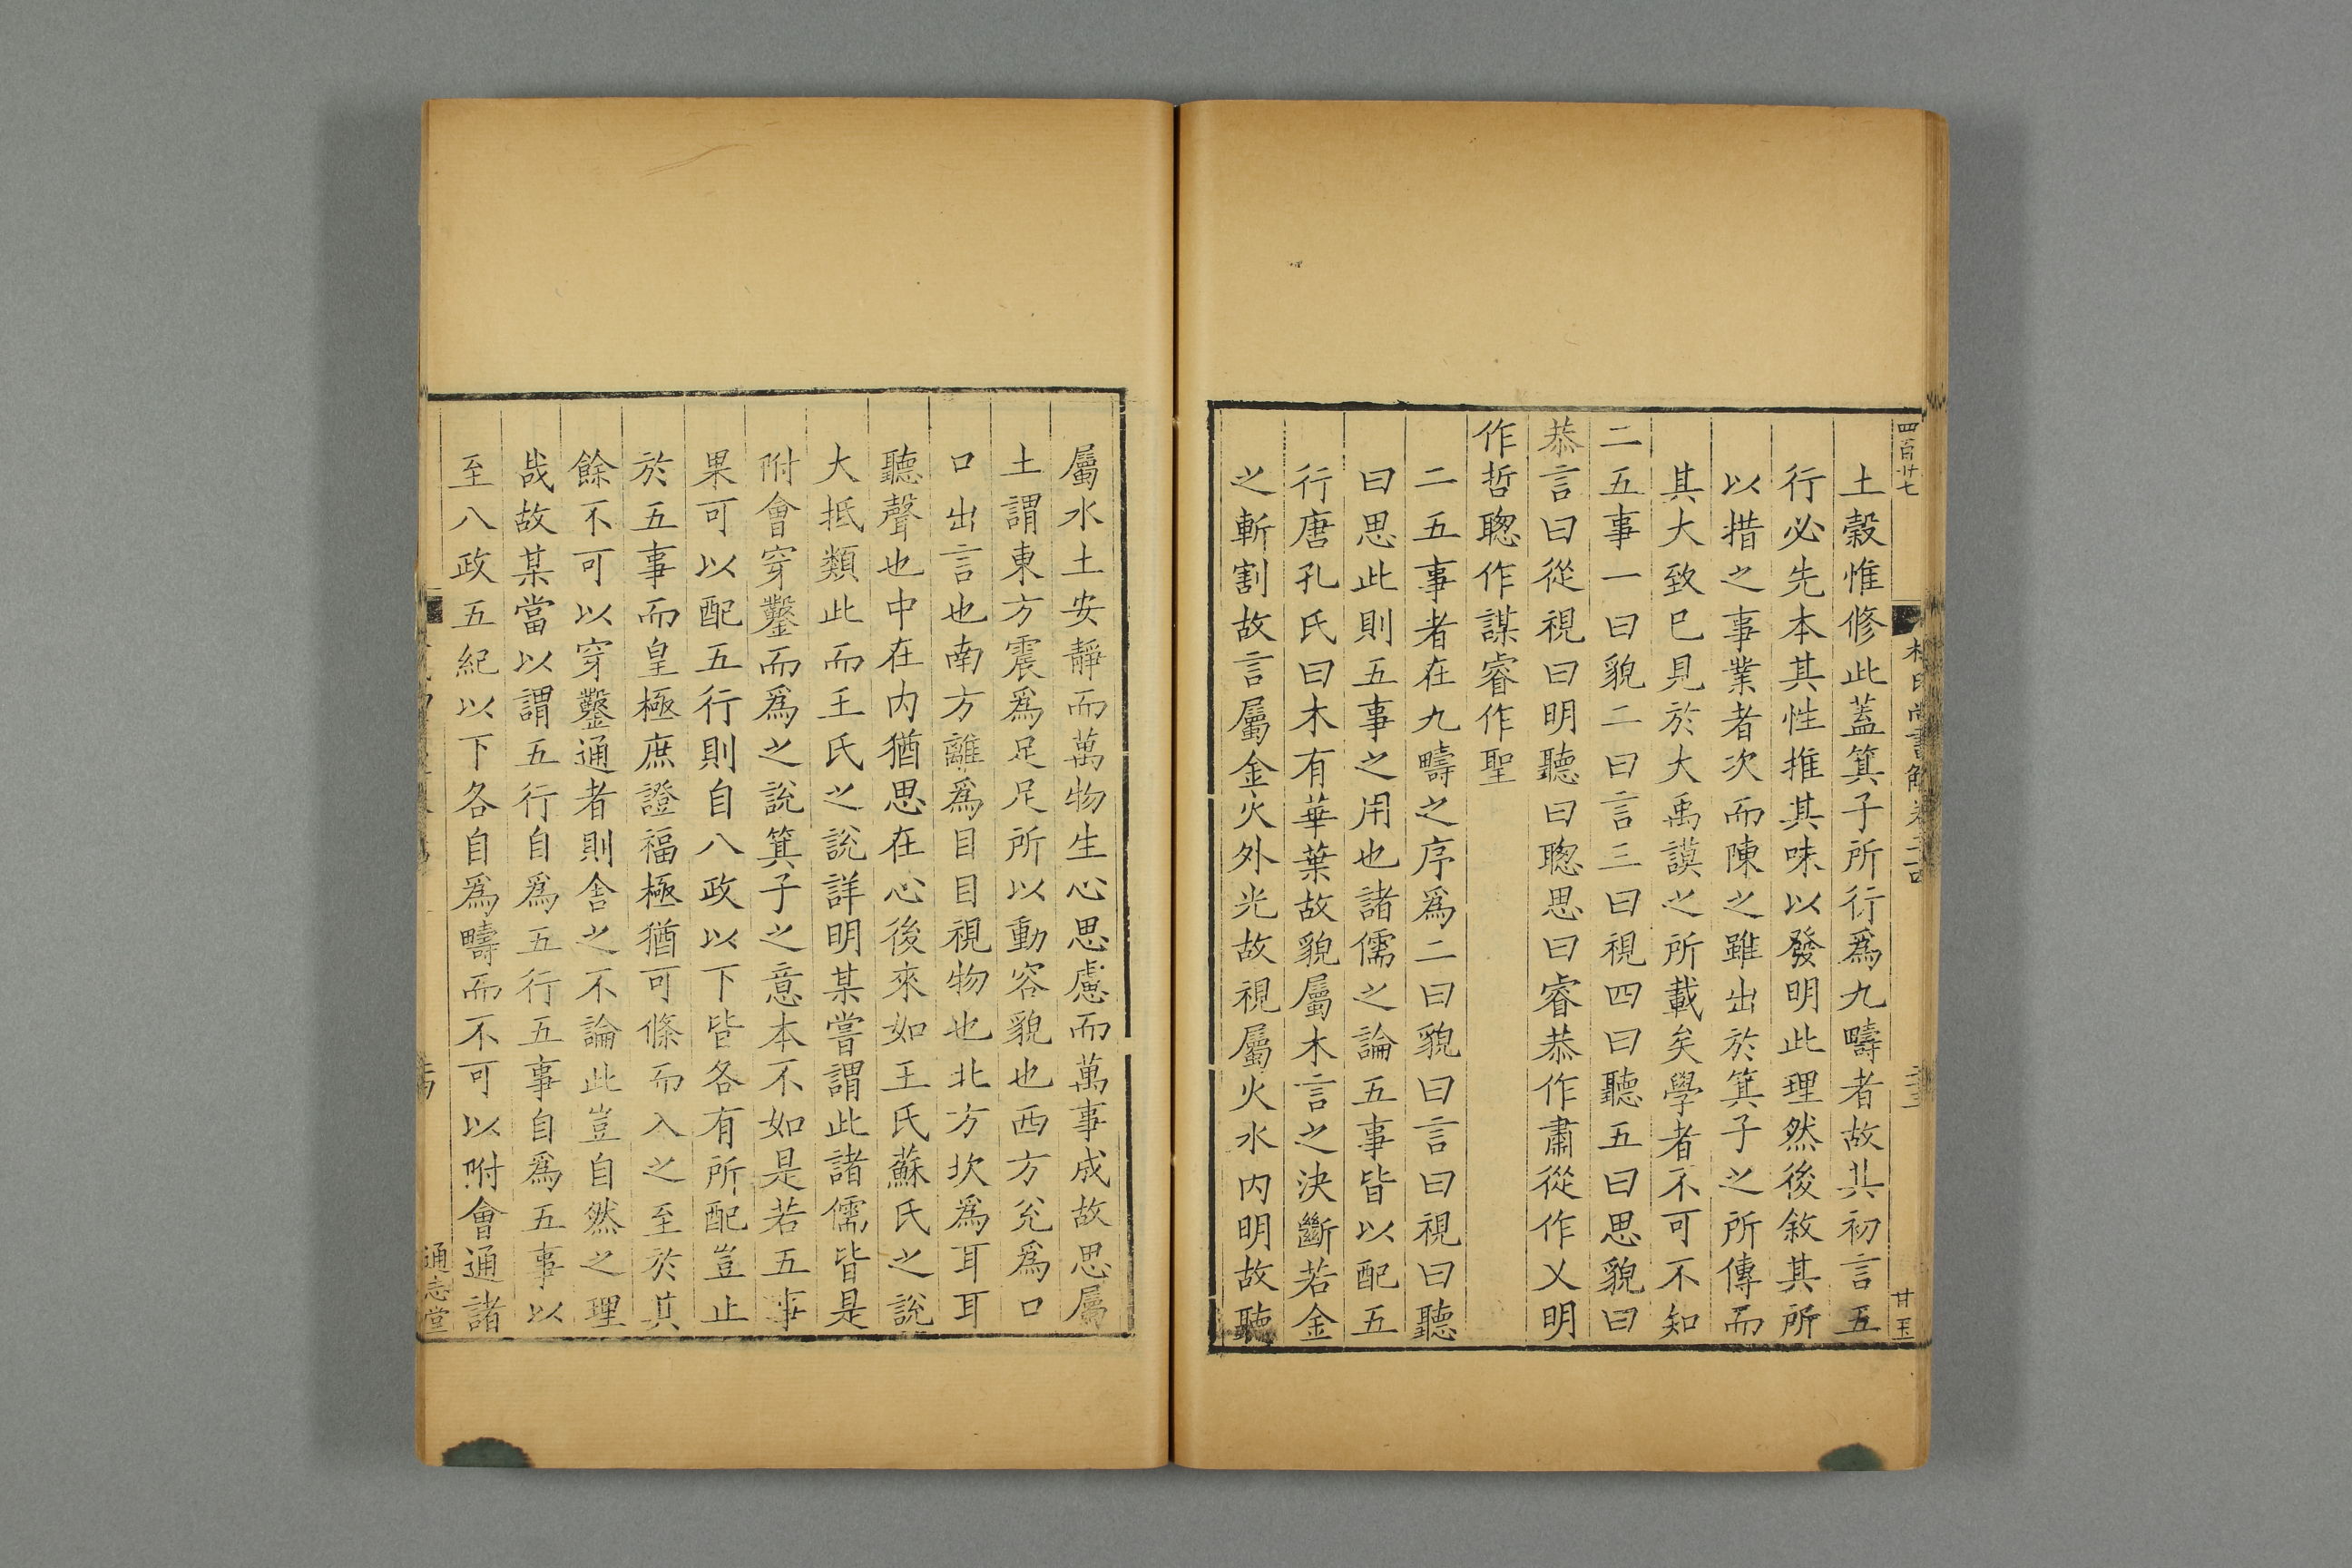 四百廿七
土榖惟修此蓋箕子所行爲九疇者故其初言五
行必先本其性推其味以發明此理然後敘其所
以措之事業者次而陳之雖出於箕子之所傳而
其大致已見於大禹謨之所載矣學者不可不知
二五事一曰貌二曰言三曰視四曰聽五曰思貌曰
恭言曰從視曰明聽曰聦思曰睿恭作肅從作乂明
作哲聦作謀睿作聖
二五事者在九疇之序爲二曰貌曰言曰視曰聽
曰思此則五事之用也諸儒之論五事皆以配五
行唐孔氏曰木有華葉故貌屬木言之決斷若金
之斬割故言屬金火外光故視屬火水内明故聽
屬水土安靜而萬物生心思慮而萬事成故思屬
土謂東方震爲足足所以動容貌也西方兊爲口
口出言也南方離爲目目視物也北方坎爲耳耳
聽聲也中在内猶思在心後來如王氏蘇氏之說
大抵類此而王氏之說詳明某嘗謂此諸儒皆是
附會穿鑿而爲之說箕子之意本不如是若五事
果可以配五行則自八政以下皆各有所配豈止
於五事而皇極庶證福極猶可條而入之至於其
餘不可以穿鑿通者則舍之不論此豈自然之理
哉故某當以謂五行自爲五行五事自爲五事以
至八政五紀以下各自爲疇而不可以附會通諸
通志堂